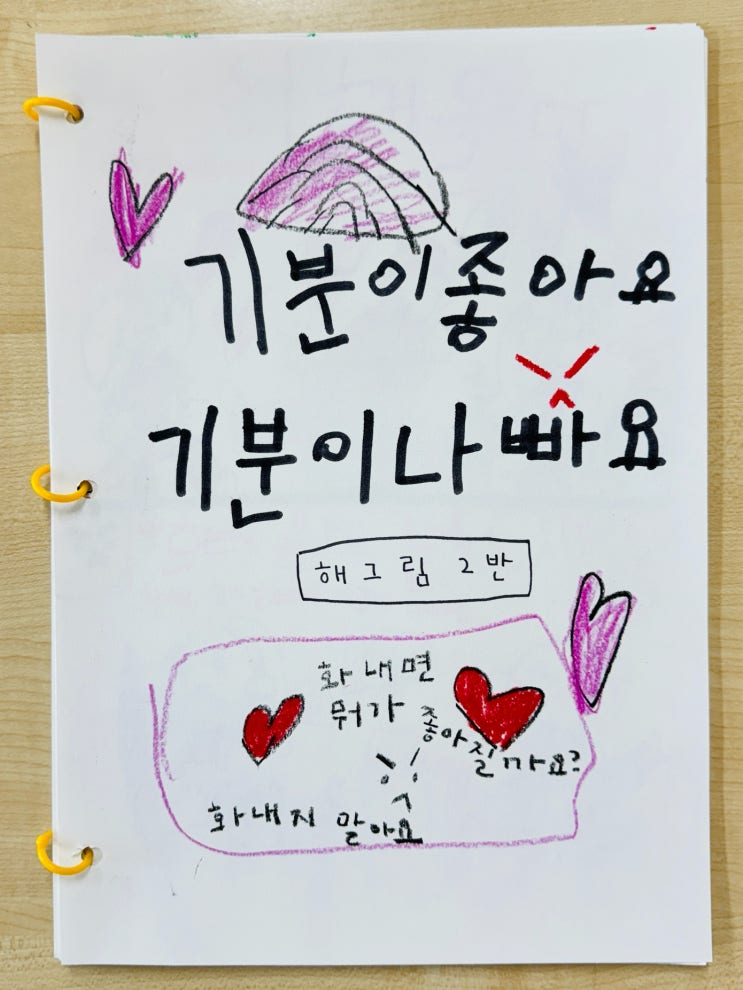 기분이좋아요
기분이나빠요
해그림 2반
화내면
뭐가
좋아질까요?
화내지 말아요